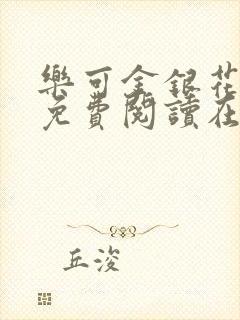 樂可金銀花
免費閱讀在
丘浚